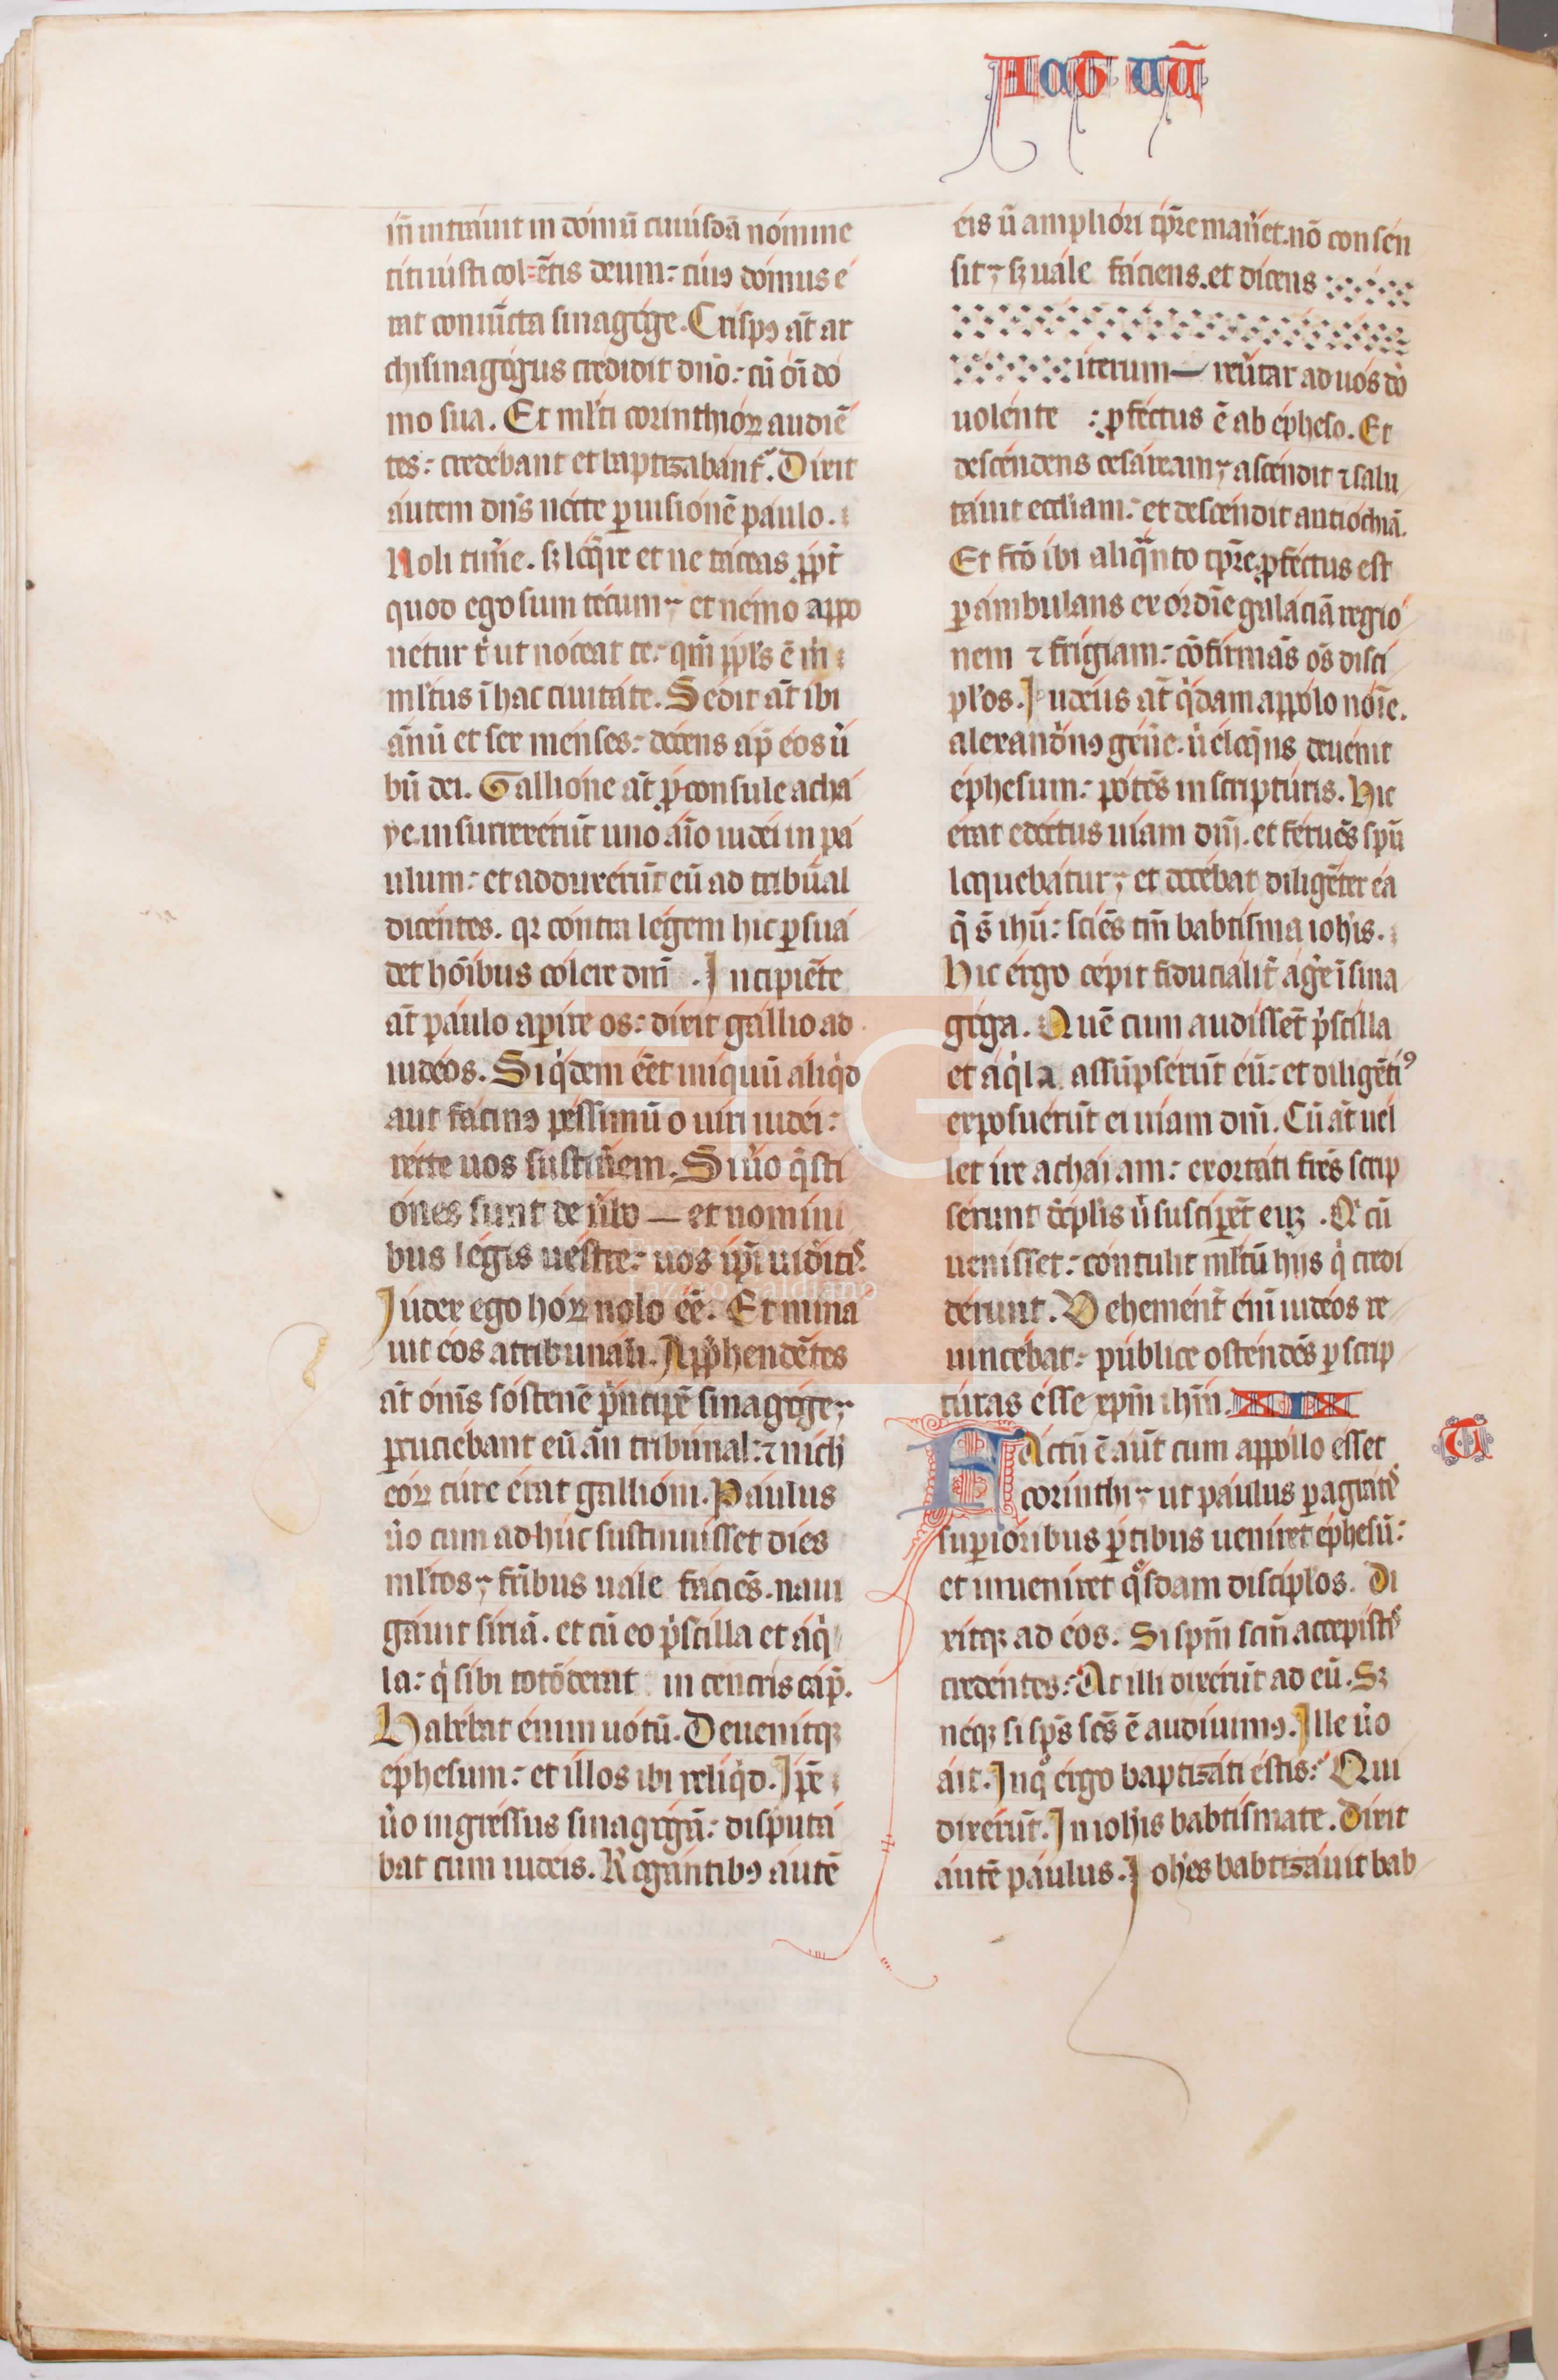 Act uū
iñ intrauit in domū cuiusdā nomine
titi iusti col=ētis deum: cuiꝰ domus e
rat coniūcta sinagoge. Crispꝰ at̄ ar
chisinagogus credidit dn̄o: cū oī do
mo sua. Et ml'ti corinthioꝝ audiē
tes: credebant et baptizabant᷑. Dixit
autem dn̄s nocte ꝑ uisionē paulo.
Noli tim̄e. sꝫ loq̄re et ne taceas ꝓpt̄
quod ego sum tecum et nemo appo
netur t̄ ut noceat te: qm̄ ppl's ē m̄
ml'tus ī hac ciuitate. Sedit at̄ ibi
ānū et sex menses: docens ap̄ eos ū
bū dei. Gallione at̄ ꝓconsule acha
ye. insurrexerūt uno aīo iudei in pa
ulum: et adduxerūt eū ad tribūal
dicentes. qꝛ contra legem hic ꝑsua
det hoībus colere dm̄. Incipiēte
at̄ paulo aperire os: dixit gallio ad
iudeos. Siq̇dem eēt iniquū aliq̇d
aut facinꝰ pessimū o uiri iudei:
recte uos sustin̄em. Si ūo q̄sti
ones sunt de ūbo — et nomini
bus legis uestre: uos ip̄i uid̄itꝭ.
Iudex ego hoꝝ nolo eē. Et mina
uit eos a tribunali. Apphendētes
at̄ om̄s sostenē p̄ncipē sinagoge
ꝑcuciebant eū an̄ tribunal: ⁊ nich̄
eoꝝ cure erat gallioni. Paulus
ūo cum adhuc sustinuisset dies
ml'tos fr̄ibus uale faciēs. naui
gauit siriā. et cū eo ṗscilla et aq̇
la: q̇ sibi totōderat in cencris cap̄.
Habebat enim uotū. Deuenitqꝫ
ephesum: et illos ibi reliq̇d. Ip̄e
ūo ingressus sinagogā: disputa
bat cum iudeis. Rogantibꝰ autē
eis ū ampliori tp̄re mañet. nō consen
sit sꝫ uale faciens. et dicens
iterum — reūtar ad uos dō
uolente : ꝓfectus ē ab epheso. Et
descendens cesaream ascendit ⁊ salu
tauit eccl'iam: et descendit antiochiā.
Et fc̄o ibi aliq̄nto tp̄re ꝓfectus est
ꝑambulans ex ordīe galaciā regio
nem ⁊ frigiam: cōfirmās oēs disci
pl'os. Iudeus at̄ q̇dam appolo noīe.
alexandrinꝰ geñe. ū eloq̄ns deuenit
ephesum: potēs in scripturis. Hic
erat edoctus uiam dn̄i. et feruēs sp̄u
loquebatur et docebat diligēter ea
q̄ s̄ ih̄u: sciēs tm̄ babtisma ioh̄is.
Hic ergo cepit fiducialit̄ aḡe ī sina
goga. Quē cum audissēt ṗscilla
et aq̇la assūpserūt eū: et diligētiꝰ
exposuerūt ei uiam dn̄i. Cū at̄ uel
let ire achaiam: exortati fr̄es scrip
serunt discipl̄is ū susciꝑēt euꝫ. Q' cū
uenisset: contulit ml'tū hijs q̇ credi
derunt. Vehement̄ eni᷑ iudeos re
uincebat: publice ostendēs ꝑ scrip
turas esse xp̄m ih̄m. XIX
Factū ē aūt cum appollo esset
corinthi ut paulus ꝑagratꝭ
suꝑioribus ꝑtibus ueniret ephesū:
et inueniret q'sdam discipl'os. Di
xitqꝫ ad eos. Si sp̄m sc̄m accepistꝭ
credentes: At illi dixerūt ad eū. Sꝫ
neqꝫ si sp̄s sc̄s ē audiuimꝰ. Ille ūo
ait. In q° ergo baptizati estis: Qui
dixerūt. In ioh̄is babtismate. Dixit
autē paulus. Ioh̄es babtizauit bab